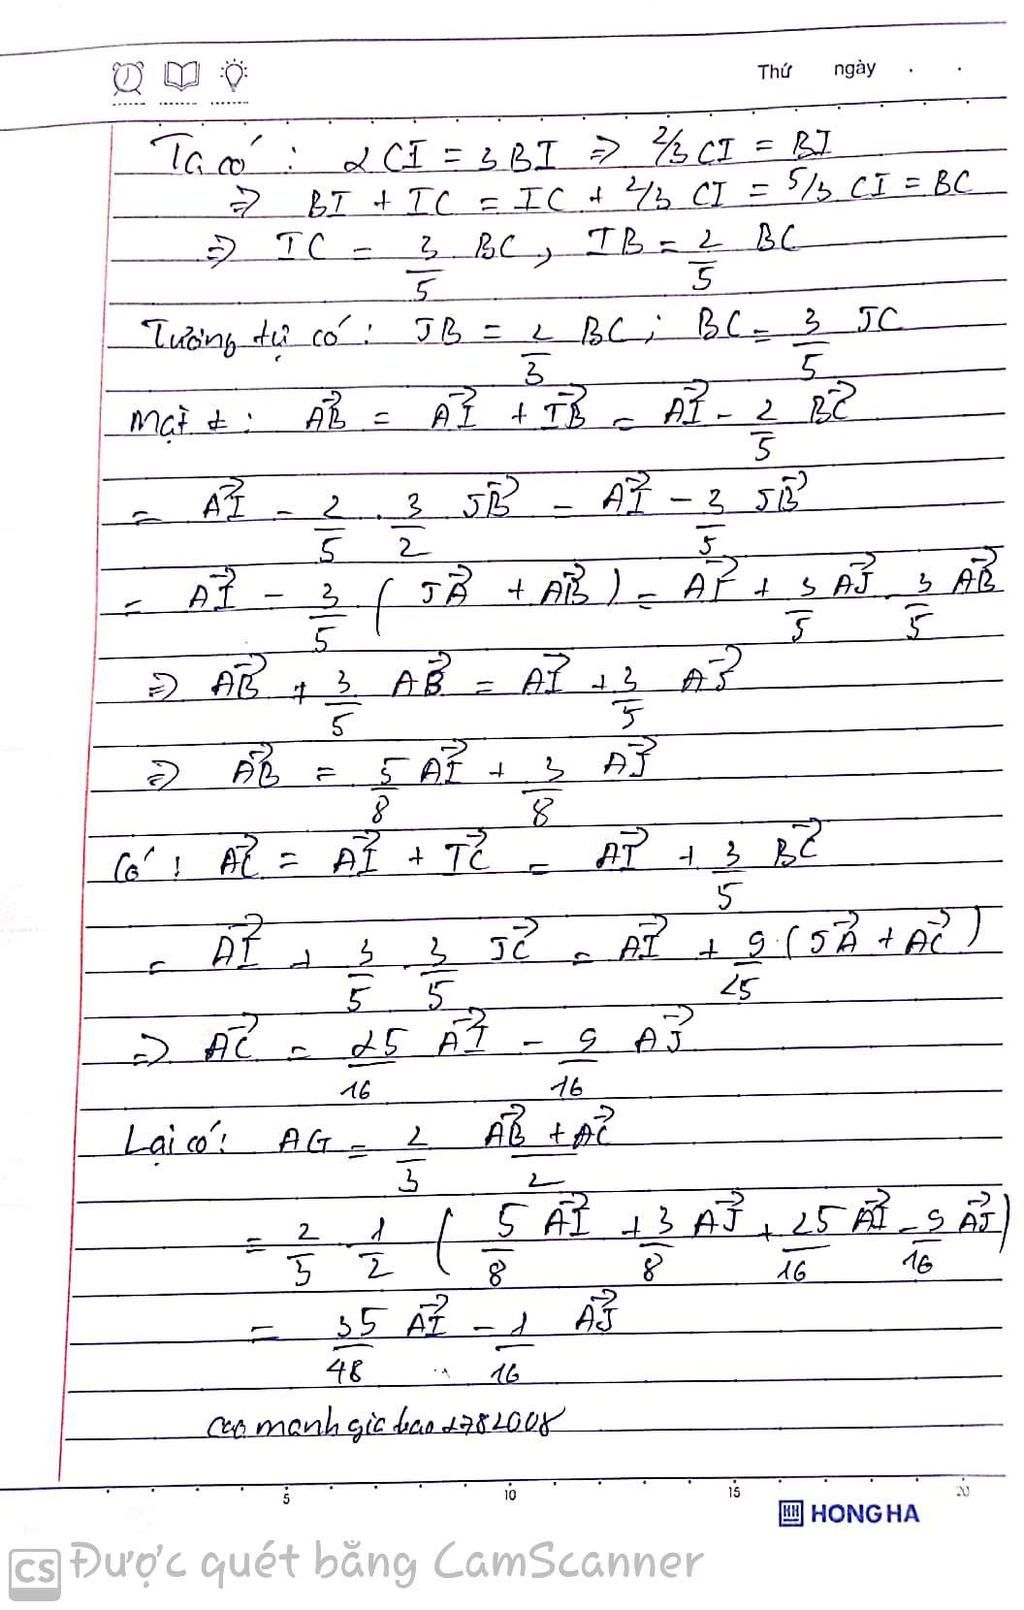 Thứ ngày . .
Ta có : 2CI = 3BI ⇒ 2/3 CI = BI
⇒ BI + IC = IC + 2/3 CI = 5/3 CI = BC
⇒ IC = 3/5 BC, IB = 2/5 BC
Tương tự có : JB = 2/3 BC ; BC = 3/5 JC
Mặt ≠ : AB→ = AI→ + IB→ = AI→ - 2/5 BC→
= AI→ - 2/5 . 3/2 JB→ = AI→ - 3/5 JB→
= AI→ - 3/5 ( JA→ + AB→ ) = AI→ + 3/5 AJ→ - 3/5 AB→
⇒ AB→ + 3/5 AB→ = AI→ + 3/5 AJ→
⇒ AB→ = 5/8 AI→ + 3/8 AJ→
Có : AC→ = AI→ + IC→ = AI→ + 3/5 BC→
= AI→ + 3/5 . 3/5 JC→ = AI→ + 9/25 ( JA→ + AC→ )
⇒ AC→ = 25/16 AI→ - 9/16 AJ→
Lại có : AG = 2/3 (AB→ + AC→)/2
= 2/3 . 1/2 ( 5/8 AI→ + 3/8 AJ→ + 25/16 AI→ - 9/16 AJ→ )
= 35/48 AI→ - 1/16 AJ→
cao manh gia bao 2782008
5 10 15 20
HH HONG HA
CS Được quét bằng CamScanner